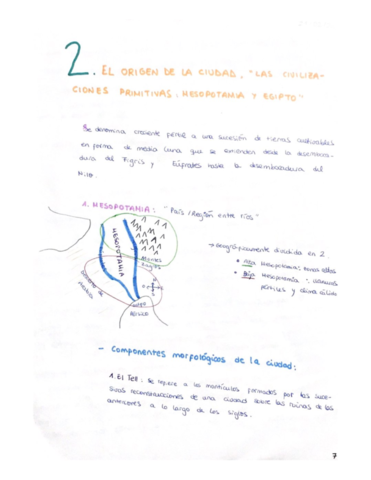 2. EL ORIGEN DE LA CIUDAD. "LAS CIVILIZA-
CIONES PRIMITIVAS: MESOPOTAMIA Y EGIPTO"
Se denomina creciente fértil a una sucesión de tierras cultivables
en forma de media luna que se extienden desde la desemboca-
dura del Tigris y Eúfrates hasta la desembocadura del
Nilo.
1. MESOPOTAMIA: "País/Región entre ríos"
MESOPOTAMIA
Montes
Zagros
Golfo
→ Geográficamente dividida en 2
• Alta Mesopotamia: zonas altas
• Baja Mesopotamia: llanuras
fértiles y clima
- Componentes morfológicos de la ciudad:
1. El Tell: Se refiere a los montículos formados por las suce-
sivas reconstrucciones de una ciudad sobre las ruinas de las
anteriores a lo largo de los siglos.
7